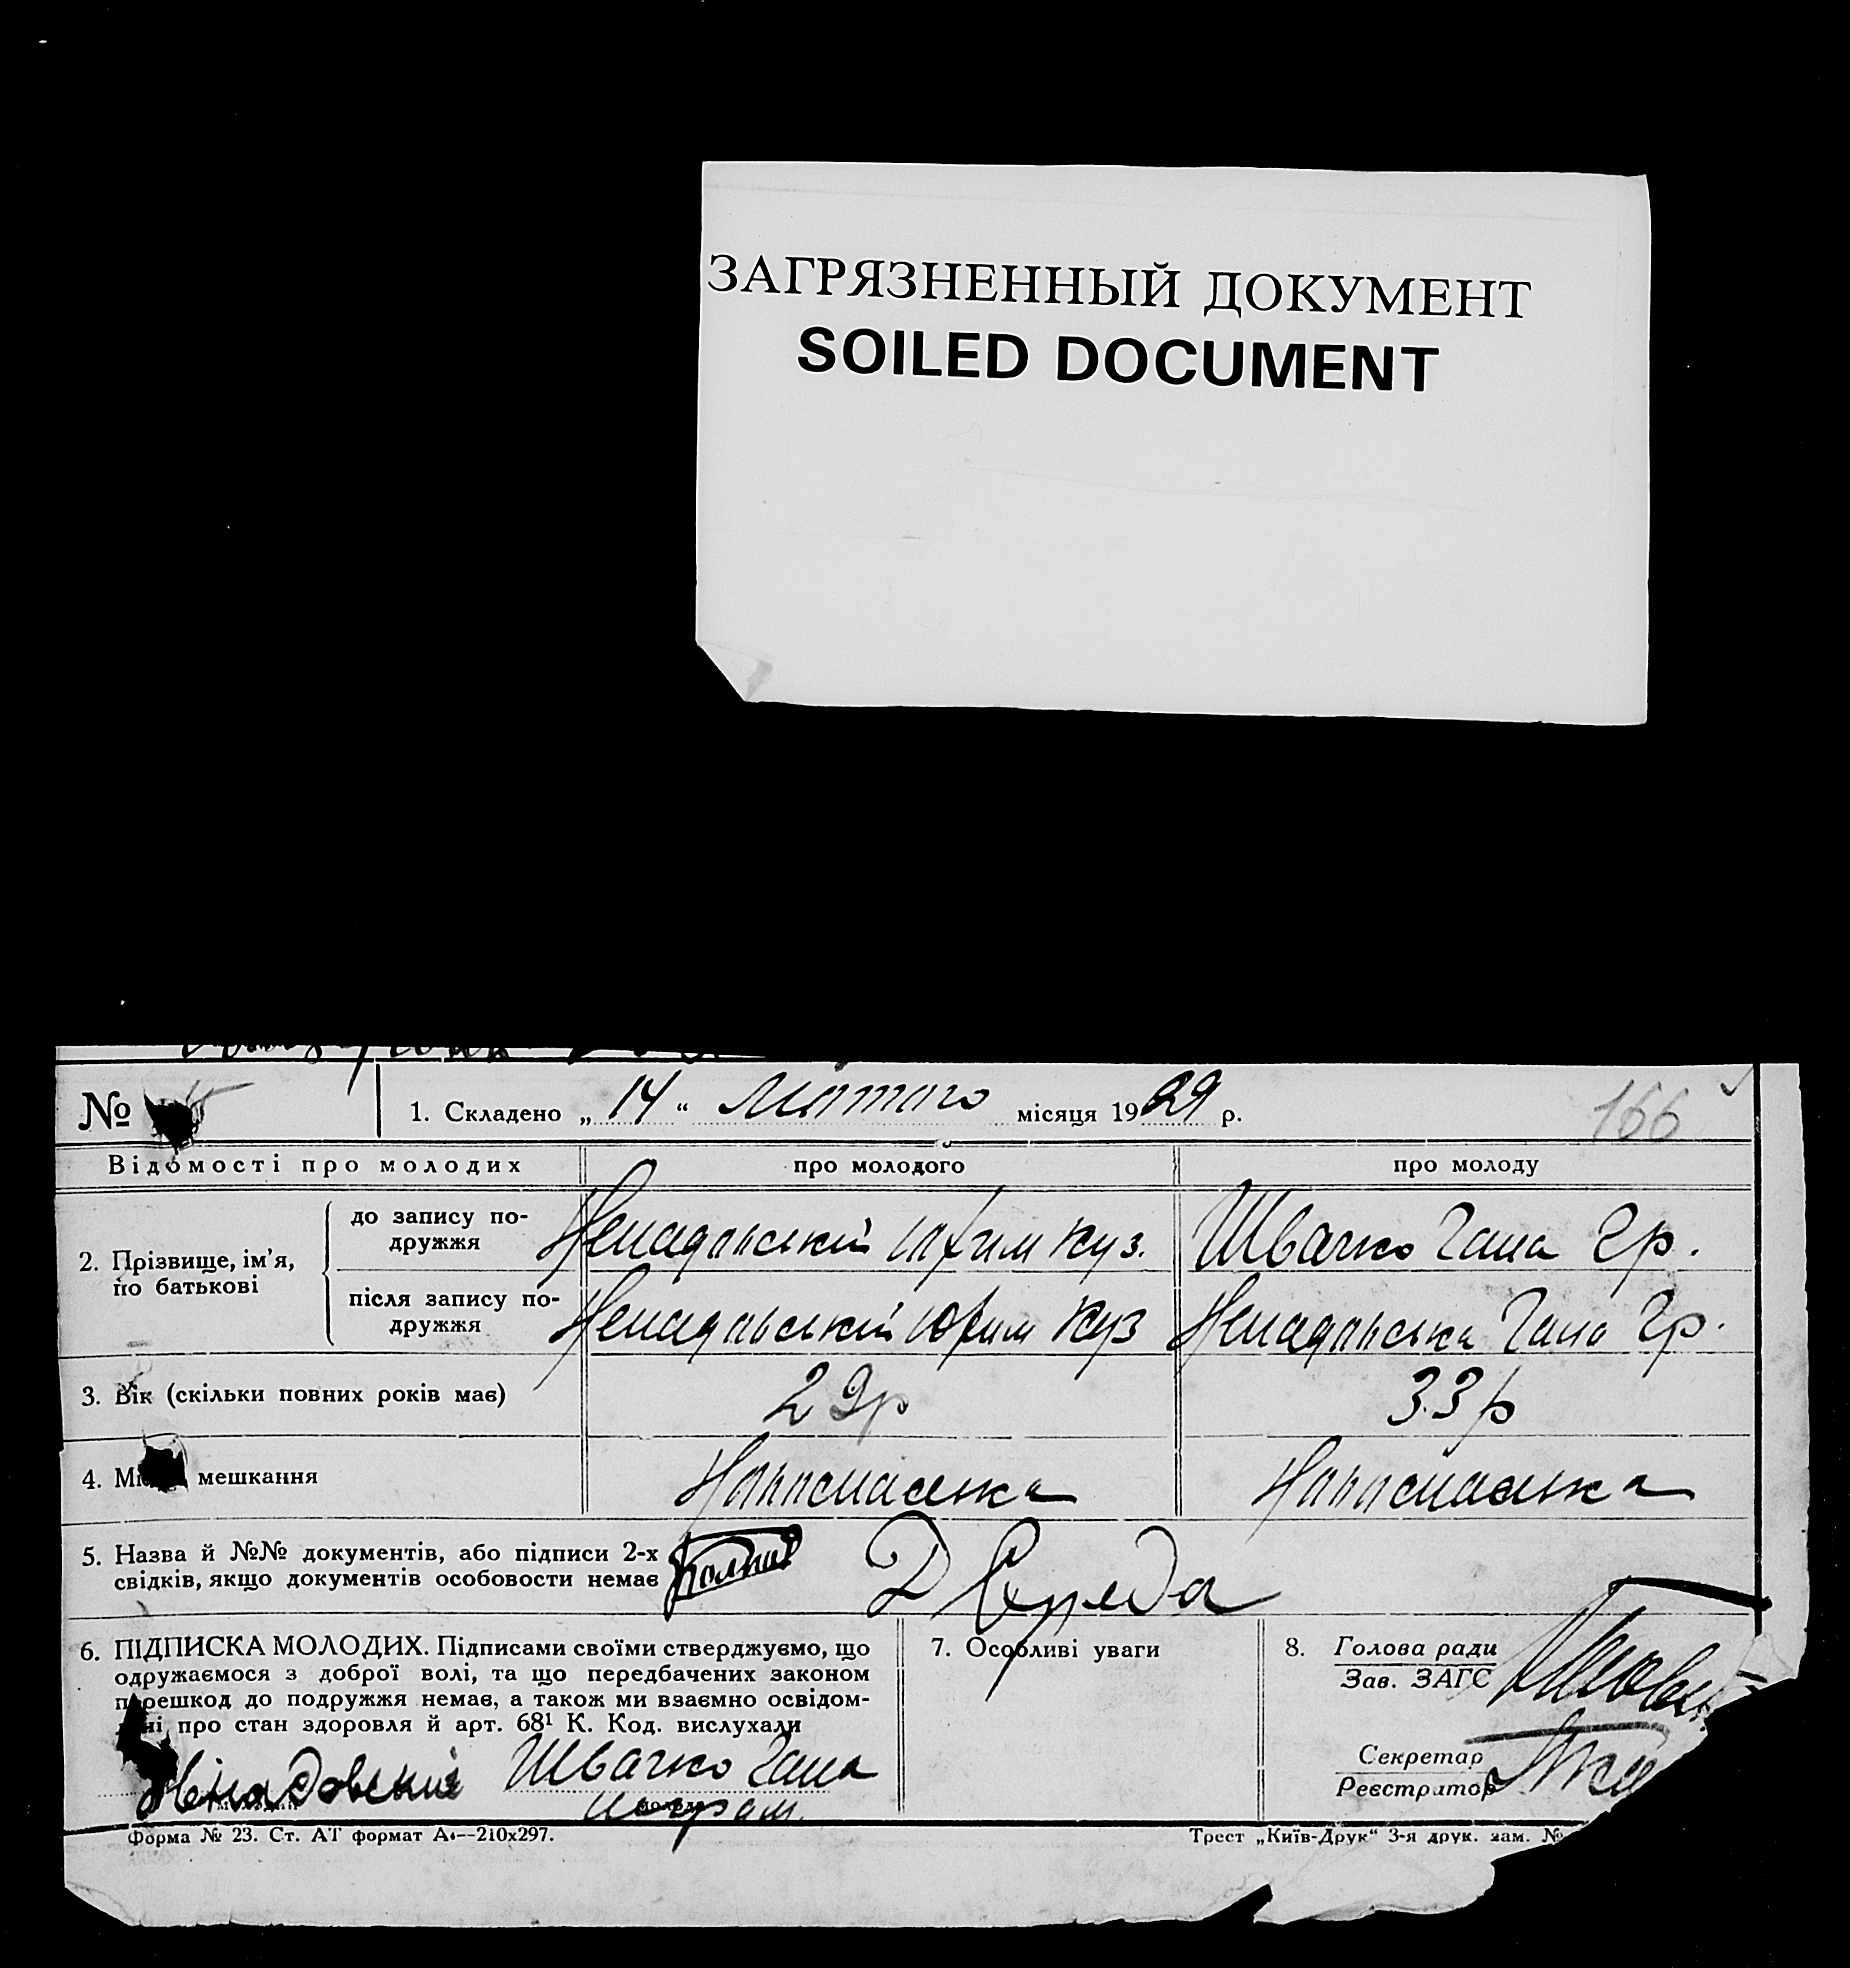 ЗАГРЯЗНЕННЫЙ ДОКУМЕНТ
SOILED DOCUMENT
№
1. Складено „ 14 “ Лютого місяця 1929 р.
166
Відомості про молодих
про молодого
про молоду
2. Прізвище, ім’я, по батькові
до запису подружжя
Ненадовський Юхим Куз.
Швачко Гана Гр.
після запису подружжя
Ненадовський Юхим Куз
Ненадовська Гана Гр.
3. Вік (скільки повних років має)
29р
33р
4. мешкання
5. Назва й №№ документів, або підписи 2-х
свідків, якщо документів особовости немає
Середа
6. ПІДПИСКА МОЛОДИХ. Підписами своїми стверджуємо, що
одружаємося з доброї волі, та що передбачених законом
перешкод до подружжя немає, а також ми взаємно освідом-
про стан здоровля й арт. 68¹ К. Код. вислухали
Швачко Гана
7. Особливі уваги
8. Голова ради
Зав. ЗАГС
Секретар
Реєстратор
Форма № 23. Ст. АТ формат А₄—210х297.
Трест „Київ-Друк“ 3-я друк. зам. №